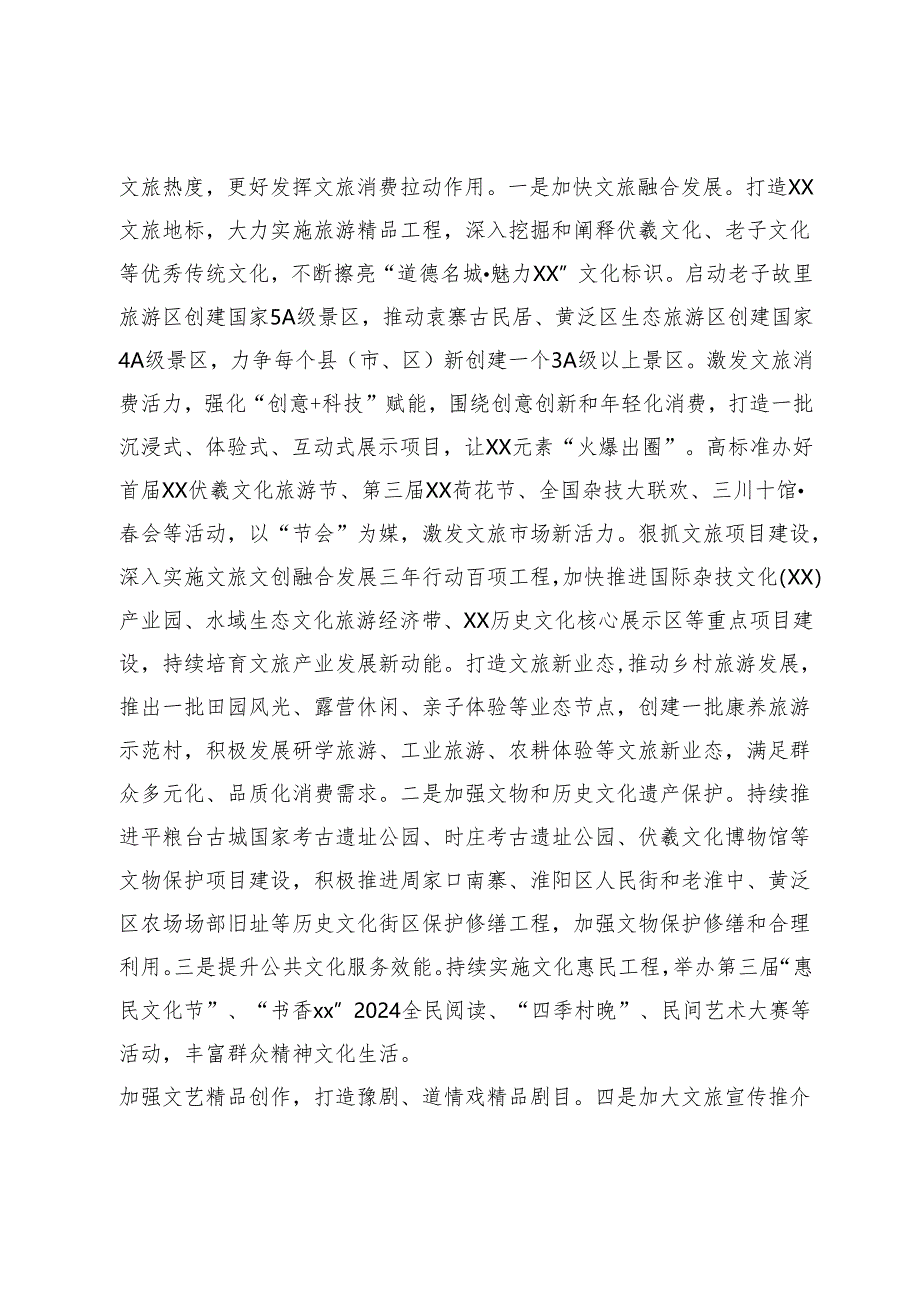 文旅热度，更好发挥文旅消费拉动作用。一是加快文旅融合发展。打造XX
文旅地标，大力实施旅游精品工程，深入挖掘和阐释伏羲文化、老子文化
等优秀传统文化，不断擦亮“道德名城•魅力XX”文化标识。启动老子故里
旅游区创建国家5A级景区，推动袁寨古民居、黄泛区生态旅游区创建国家
4A级景区，力争每个县（市、区）新创建一个3A级以上景区。激发文旅消
费活力，强化“创意+科技”赋能，围绕创意创新和年轻化消费，打造一批
沉浸式、体验式、互动式展示项目，让XX元素“火爆出圈”。高标准办好
首届XX伏羲文化旅游节、第三届XX荷花节、全国杂技大联欢、三川十馆•
春会等活动，以“节会”为媒，激发文旅市场新活力。狠抓文旅项目建设，
深入实施文旅文创融合发展三年行动百项工程,加快推进国际杂技文化(XX)
产业园、水域生态文化旅游经济带、XX历史文化核心展示区等重点项目建
设，持续培育文旅产业发展新动能。打造文旅新业态,推动乡村旅游发展，
推出一批田园风光、露营休闲、亲子体验等业态节点，创建一批康养旅游
示范村，积极发展研学旅游、工业旅游、农耕体验等文旅新业态，满足群
众多元化、品质化消费需求。二是加强文物和历史文化遗产保护。持续推
进平粮台古城国家考古遗址公园、时庄考古遗址公园、伏羲文化博物馆等
文物保护项目建设，积极推进周家口南寨、淮阳区人民街和老淮中、黄泛
区农场场部旧址等历史文化街区保护修缮工程，加强文物保护修缮和合理
利用。三是提升公共文化服务效能。持续实施文化惠民工程,举办第三届“惠
民文化节”、“书香xx”2024全民阅读、“四季村晚”、民间艺术大赛等
活动，丰富群众精神文化生活。
加强文艺精品创作，打造豫剧、道情戏精品剧目。四是加大文旅宣传推介